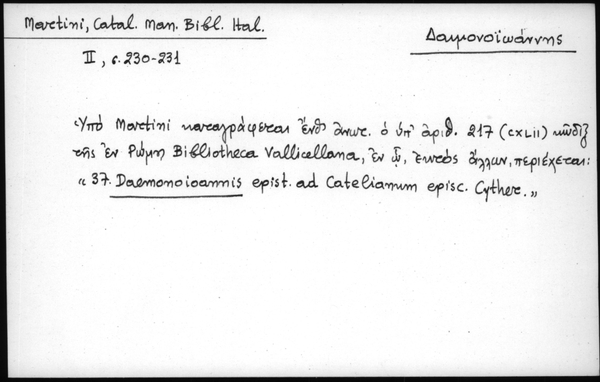 Martini, Catal. Man. Bibl. Ital.
Δαιμονοϊωάννης
II, σ. 230-231
Ὑπό Martini καταγράφεται ἔνθ' ἀνωτ. ὁ ὑπ' ἀριθ. 217 (CXLII) κῶδιξ
τῆς ἐν Ρώμῃ Bibliotheca Vallicellana, ἐν ᾧ, ἐκτός ἄλλων, περιέχεται:
« 37. Daemonoioannis epist. ad Catelianum episc. Cyther. »